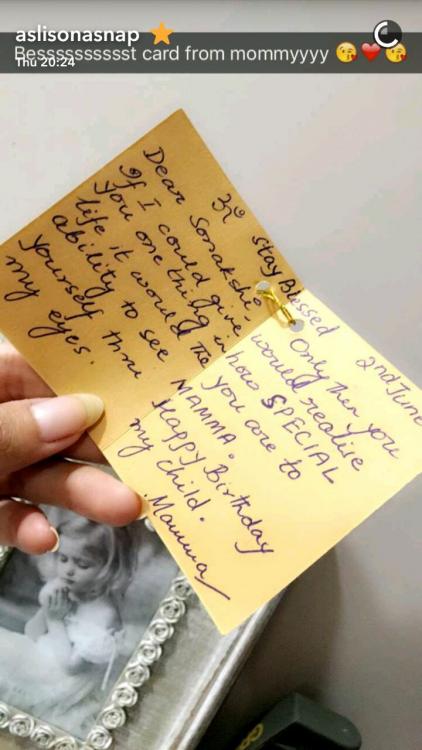 aslisonasnap ⭐
Bessssssssssst card from mommyyyy 😘❤️😘
Thu 20:24
ॐ
Dear Sonakshi,
If I could give
you one thing in
life it would The
ability to see
yourself thru
my eyes.
Stay Blessed
2nd June
Only then you
would realise
how SPECIAL
you are to
MAMMA.
Happy Birthday
my child.
Mamma